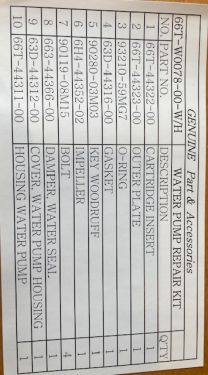 GENUINE Part & Accessories
66T-W0078-00-W/H WATER PUMP REPAIR KIT
NO. PART NO. DESCRIPTION Q'TY
1 66T-44322-00 CARTRIDGE INSERT 1
2 66T-44323-00 OUTER PLATE 1
3 93210-59MG7 O-RING 1
4 63D-44316-00 GASKET 1
5 90280-03M03 KEY WOODRUFF 1
6 6H4-44352-02 IMPELLER 1
7 90119-08M15 BOLT 4
8 663-44366-00 DAMPER, WATER SEAL 1
9 63D-44312-00 COVER, WATER PUMP HOUSING 1
10 66T-44311-00 HOUSING WATER PUMP 1